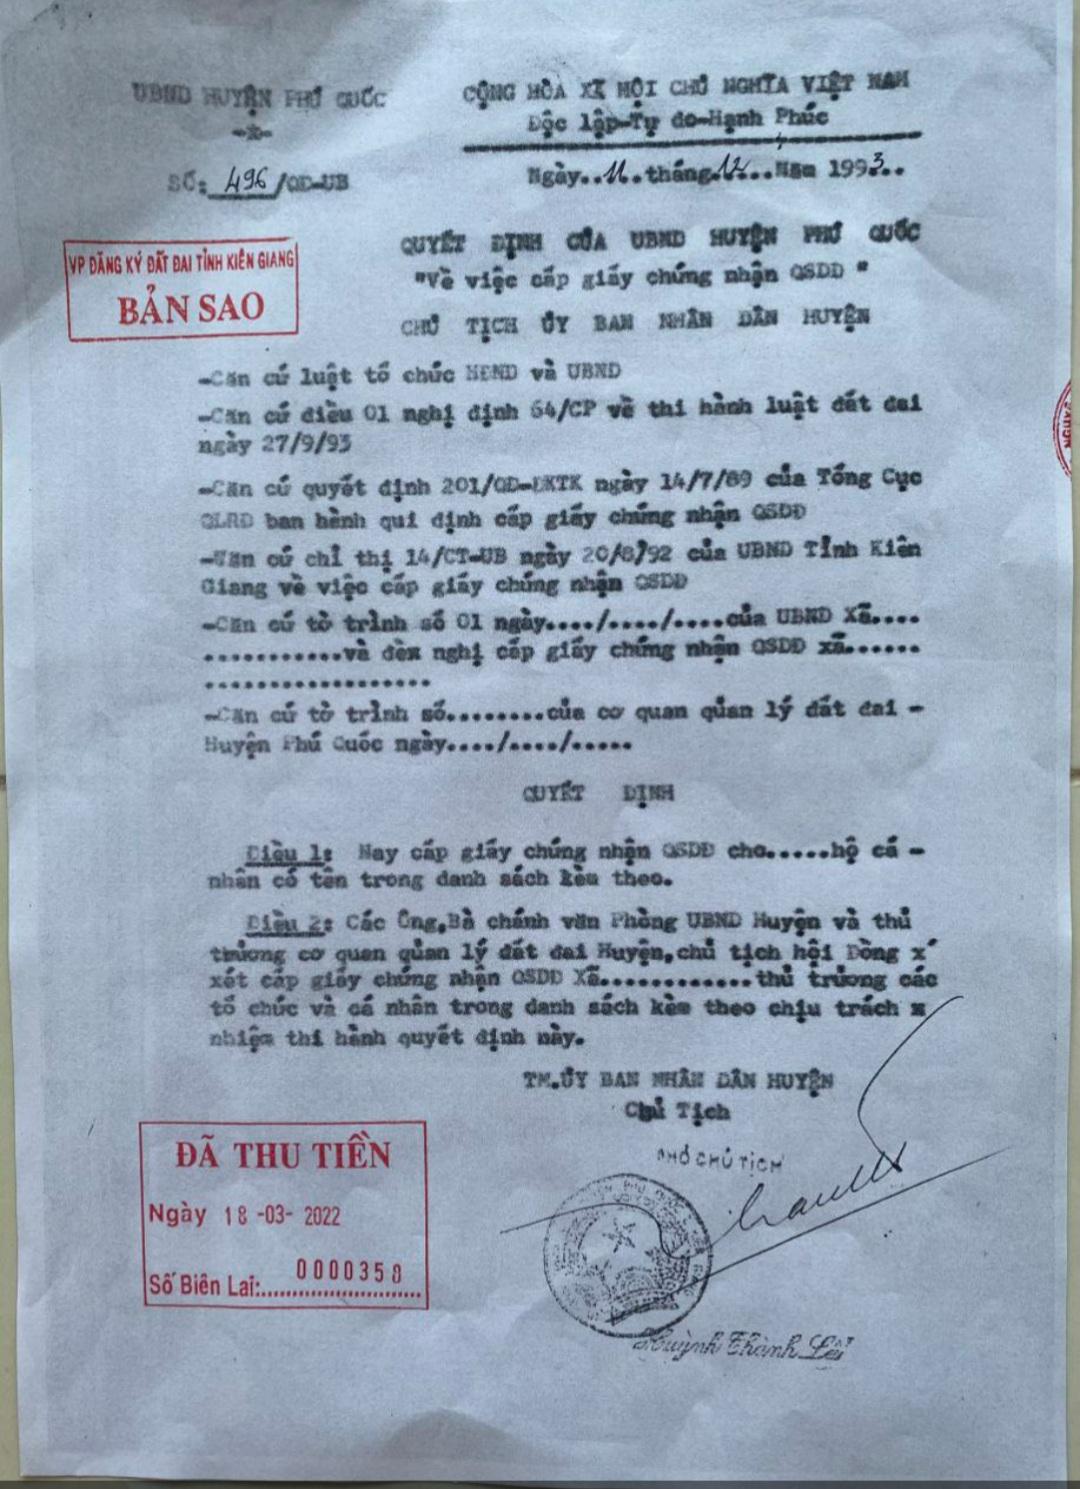 UBND HUYỆN PHÚ QUỐC
CỘNG HÒA XÃ HỘI CHỦ NGHĨA VIỆT NAM
Độc lập-Tự do-Hạnh Phúc
SỐ: 496/QD-UB
Ngày..11..tháng.12...Năm 1993..
VP ĐĂNG KÝ ĐẤT ĐAI TỈNH KIÊN GIANG
BẢN SAO
QUYẾT ĐỊNH CỦA UBND HUYỆN PHÚ QUỐC
"Về việc cấp giấy chứng nhận QSDĐ "
CHỦ TỊCH ỦY BAN NHÂN DÂN HUYỆN
-Căn cứ luật tổ chức HĐND và UBND
-Căn cứ điều 01 nghị định 64/CP về thi hành luật đất đai
ngày 27/9/93
-Căn cứ quyết định 201/QD-ĐKTK ngày 14/7/89 của Tổng Cục
QLRĐ ban hành qui định cấp giấy chứng nhận QSDĐ
-Căn cứ chỉ thị 14/CT-UB ngày 20/8/92 của UBND Tỉnh Kiên
Giang về việc cấp giấy chứng nhận QSDĐ
-Căn cứ tờ trình số 01 ngày..../..../....của UBND Xã....
............và đèn nghị cấp giấy chứng nhận QSDĐ xã......
...................
-Căn cứ tờ trình số........của cơ quan quản lý đất đai -
Huyện Phú Quốc ngày..../..../.....
QUYẾT ĐỊNH
Điều 1: Nay cấp giấy chứng nhận QSDĐ cho.....hộ cá -
nhân có tên trong danh sách kèm theo.
Điều 2: Các Ông,Bà chánh văn Phòng UBND Huyện và thủ
trưởng cơ quan quản lý đất đai Huyện,chủ tịch hội Đồng x
xét cấp giấy chứng nhận QSDĐ Xã............thủ trương các
tổ chức và cá nhân trong danh sách kèm theo chịu trách x
nhiệm thi hành quyết định này.
TM.ỦY BAN NHÂN DÂN HUYỆN
Chủ Tịch
PHÓ CHỦ TỊCH
ĐÃ THU TIỀN
Ngày 18 -03- 2022
Số Biên Lai:0000358
Huỳnh Thành Lẽi